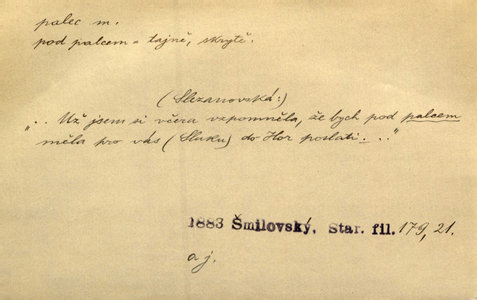 palec m.
pod palcem = tajně, skrytě.
(Slezanovská:)
„.. Už jsem si včera vzpomněla, že bych pod palcem
měla pro vás (Sluku) do Hor poslati. .."
1883 Šmilovský, Star. fil. 179, 21.
a j.